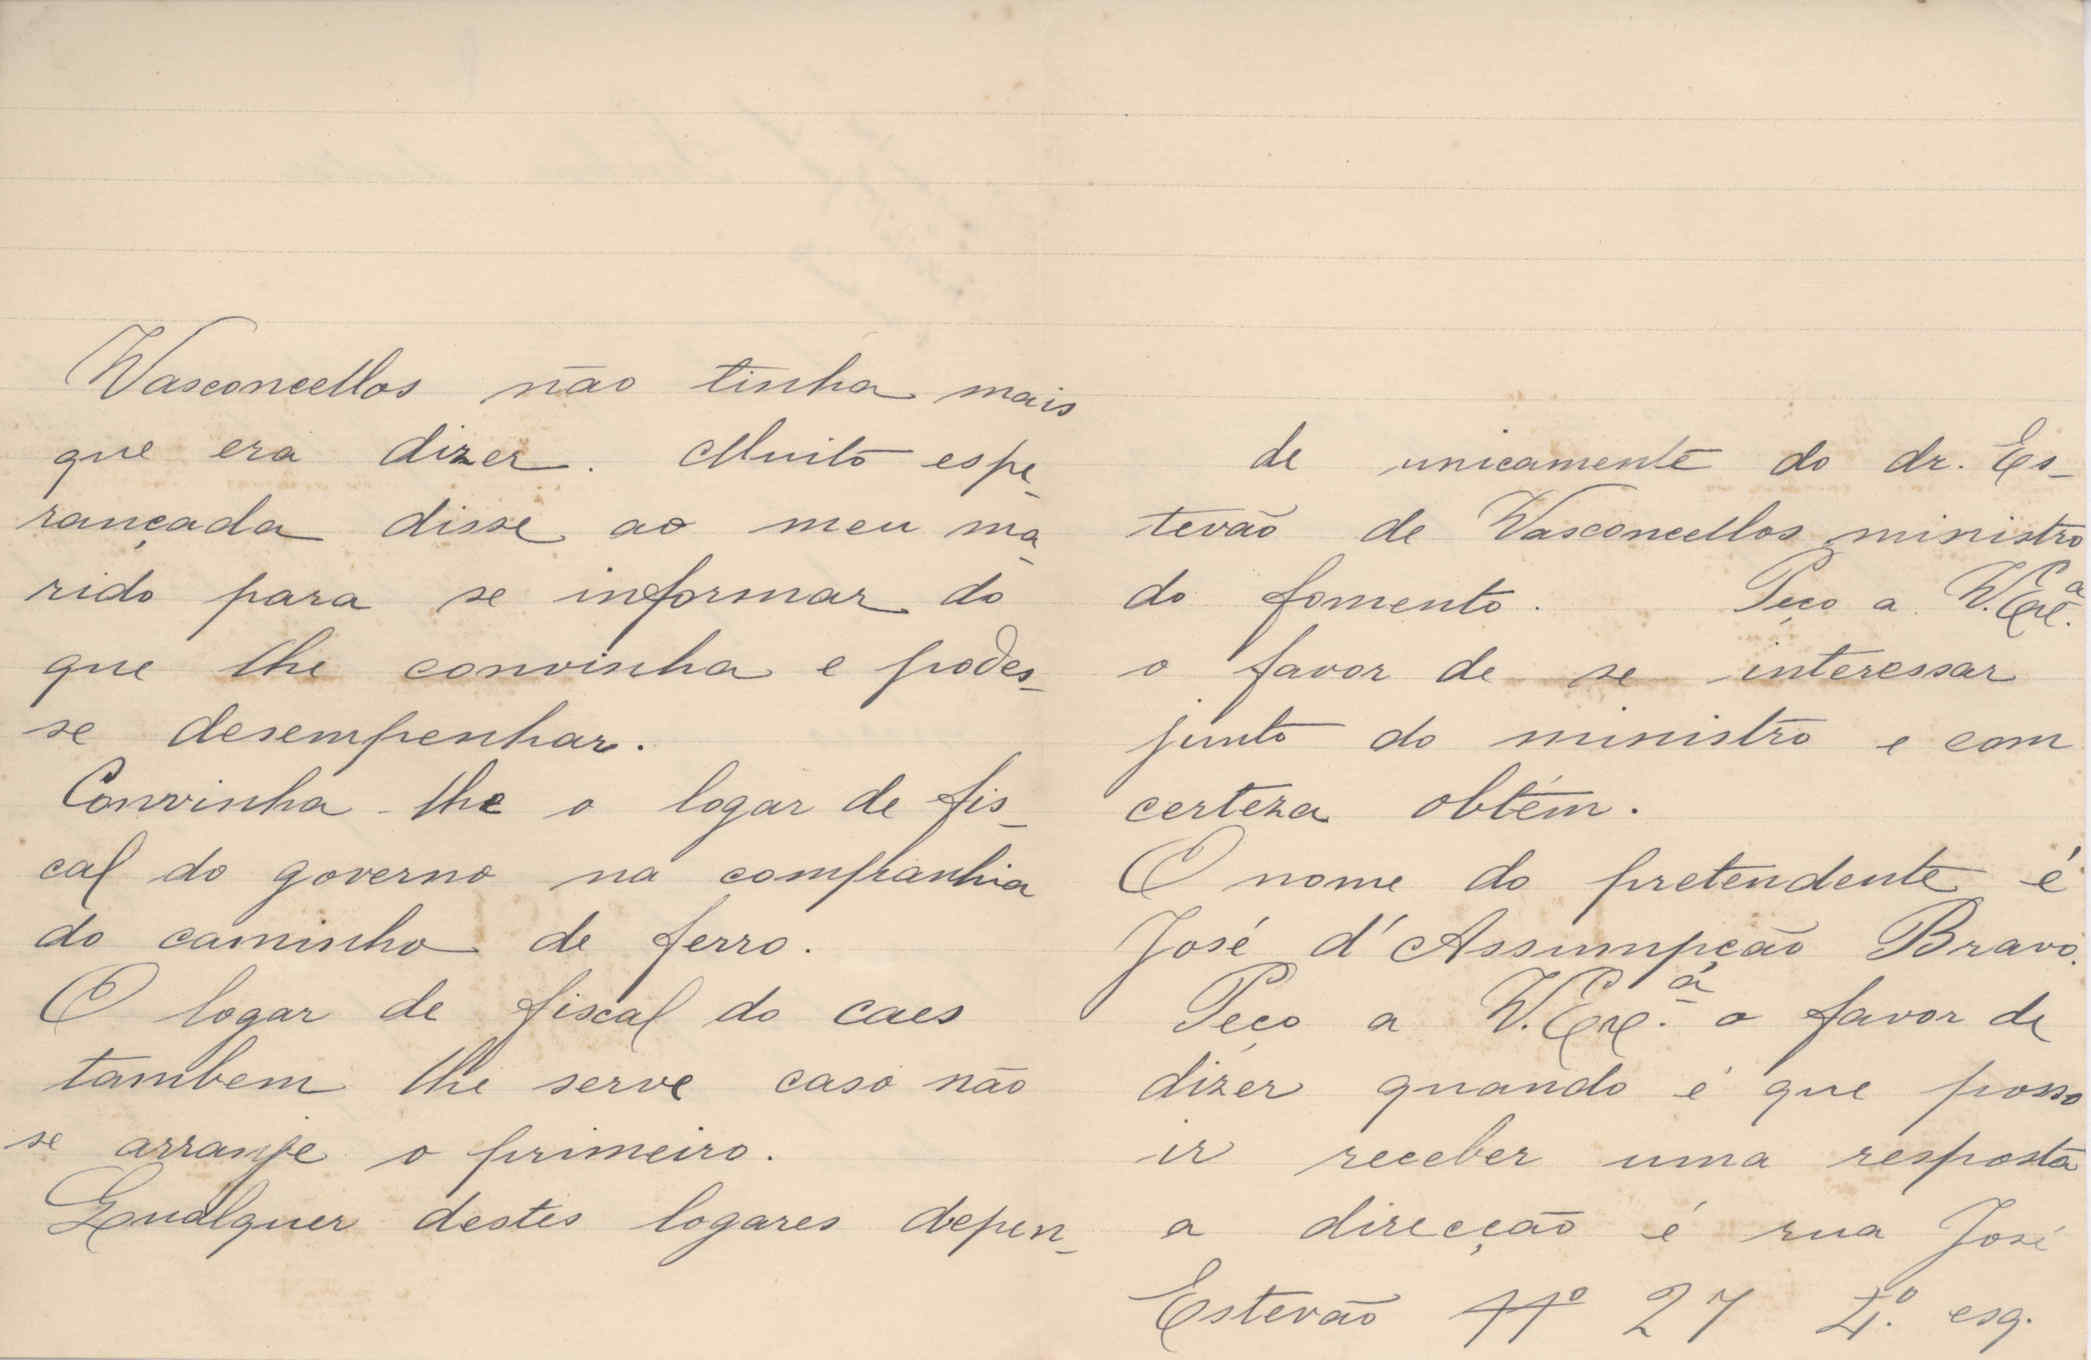 Vasconcellos não tinha mais
que era dizer. Muito espe-
rançada disse ao meu ma-
rido para se informar do
que lhe convinha e podes-
se desempenhar.
Convinha-lhe o logar de fis-
cal do governo na companhia
do caminho de ferro.
O logar de fiscal do caes
tambem lhe serve caso não
se arranje o primeiro.
Qualquer destes logares depen-
de unicamente do dr. Es-
tevão de Vasconcellos ministro
do fomento. Peço a V. Exc.ª
o favor de se interessar
junto do ministro e com
certeza obtém.
O nome do pretendente é
José d'Assumpção Bravo.
Peço a V. Exc.ª o favor de
dizer quando é que posso
ir receber uma resposta
a direcção é rua José
Estevão nº 27 4.º esq.